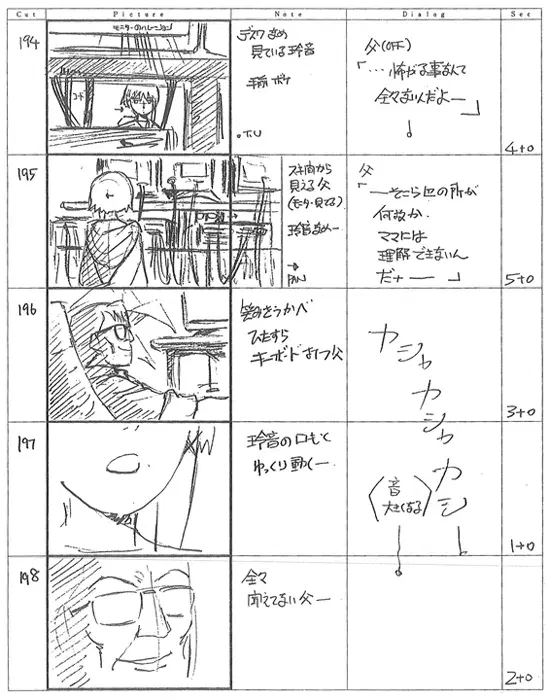 Cut
Picture
Note
Dialog
Sec
194
モニターのハレーション
デスクなめ
見ている玲音
手前ボケ
T.U
父(OFF)
「…怖がる事なんて
全々ないんだよー
」
4+0
195
スキ間から
見える父
(モニター見てる)
玲音なめ―
→
PAN
父
「―そこら辺の所が
何故か
ママには
理解できないん
だナ――」
5+0
196
笑みをうかべ
ひたすら
キーボードをうつ父
カシャ
カシャ
3+0
197
玲音の口もと
ゆっくり動く―
カシ
〈音
大きくなる〉
1+0
198
全々
聞えてない父―
2+0